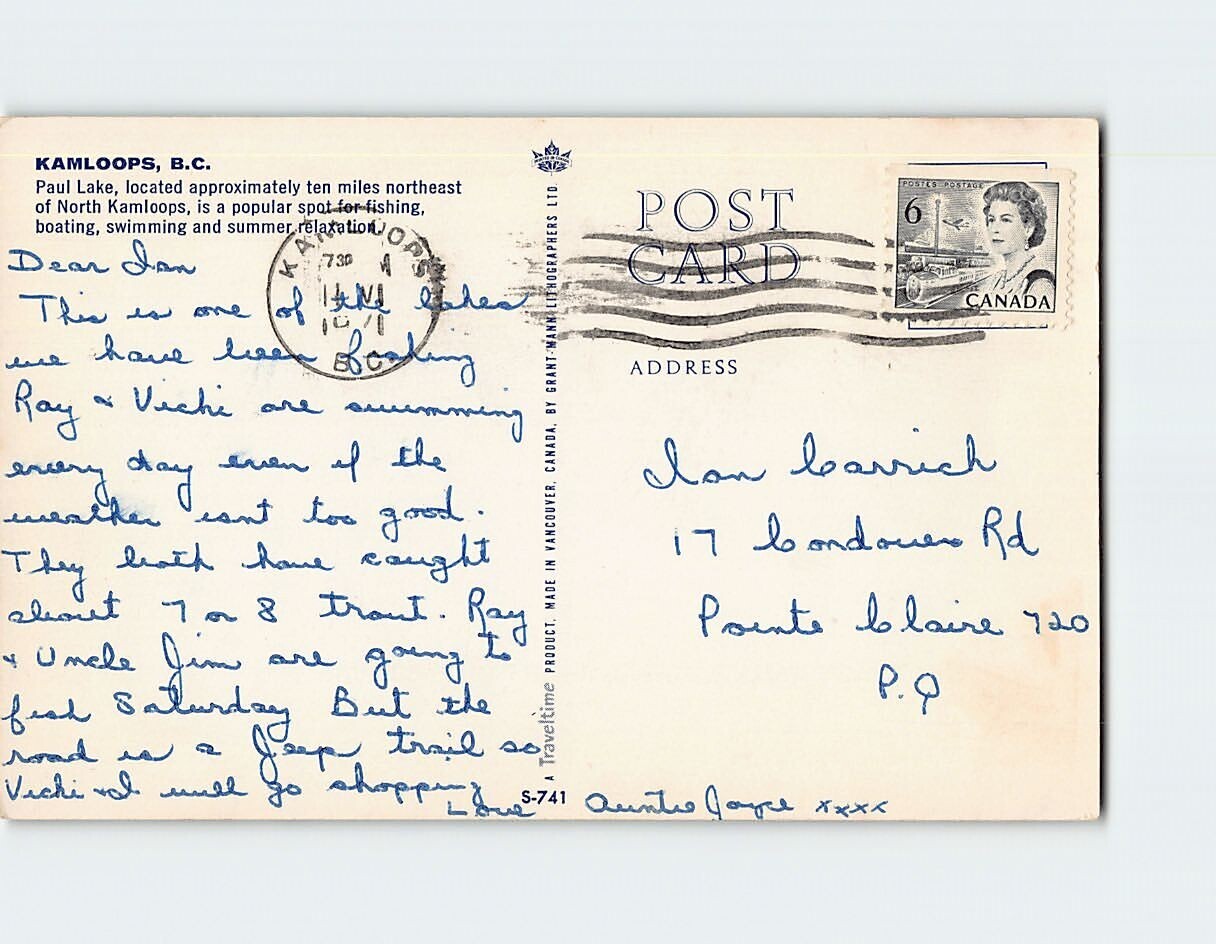 KAMLOOPS, B.C.
Paul Lake, located approximately ten miles northeast
of North Kamloops, is a popular spot for fishing,
boating, swimming and summer relaxation.
Dear Ian
This is one of the lakes
we have been fishing
Ray & Vicki are swimming
every day even if the
weather isnt too good.
They both have caught
about 7 or 8 trout. Ray
& Uncle Jim are going to
fish Saturday But the
road is a Jeep trail so
Vicki & I will go shopping
Love Auntie Joyce xxxx
S-741
A Traveltime PRODUCT, MADE IN VANCOUVER, CANADA, BY GRANT-MANN LITHOGRAPHERS LTD.
PRINTED IN CANADA
KAMLOOPS
730
VI
71
B.C.
POST
CARD
POSTES POSTAGE
6
CANADA
ADDRESS
Ian Carrick
17 Rd
Pointe Claire 720
P.Q